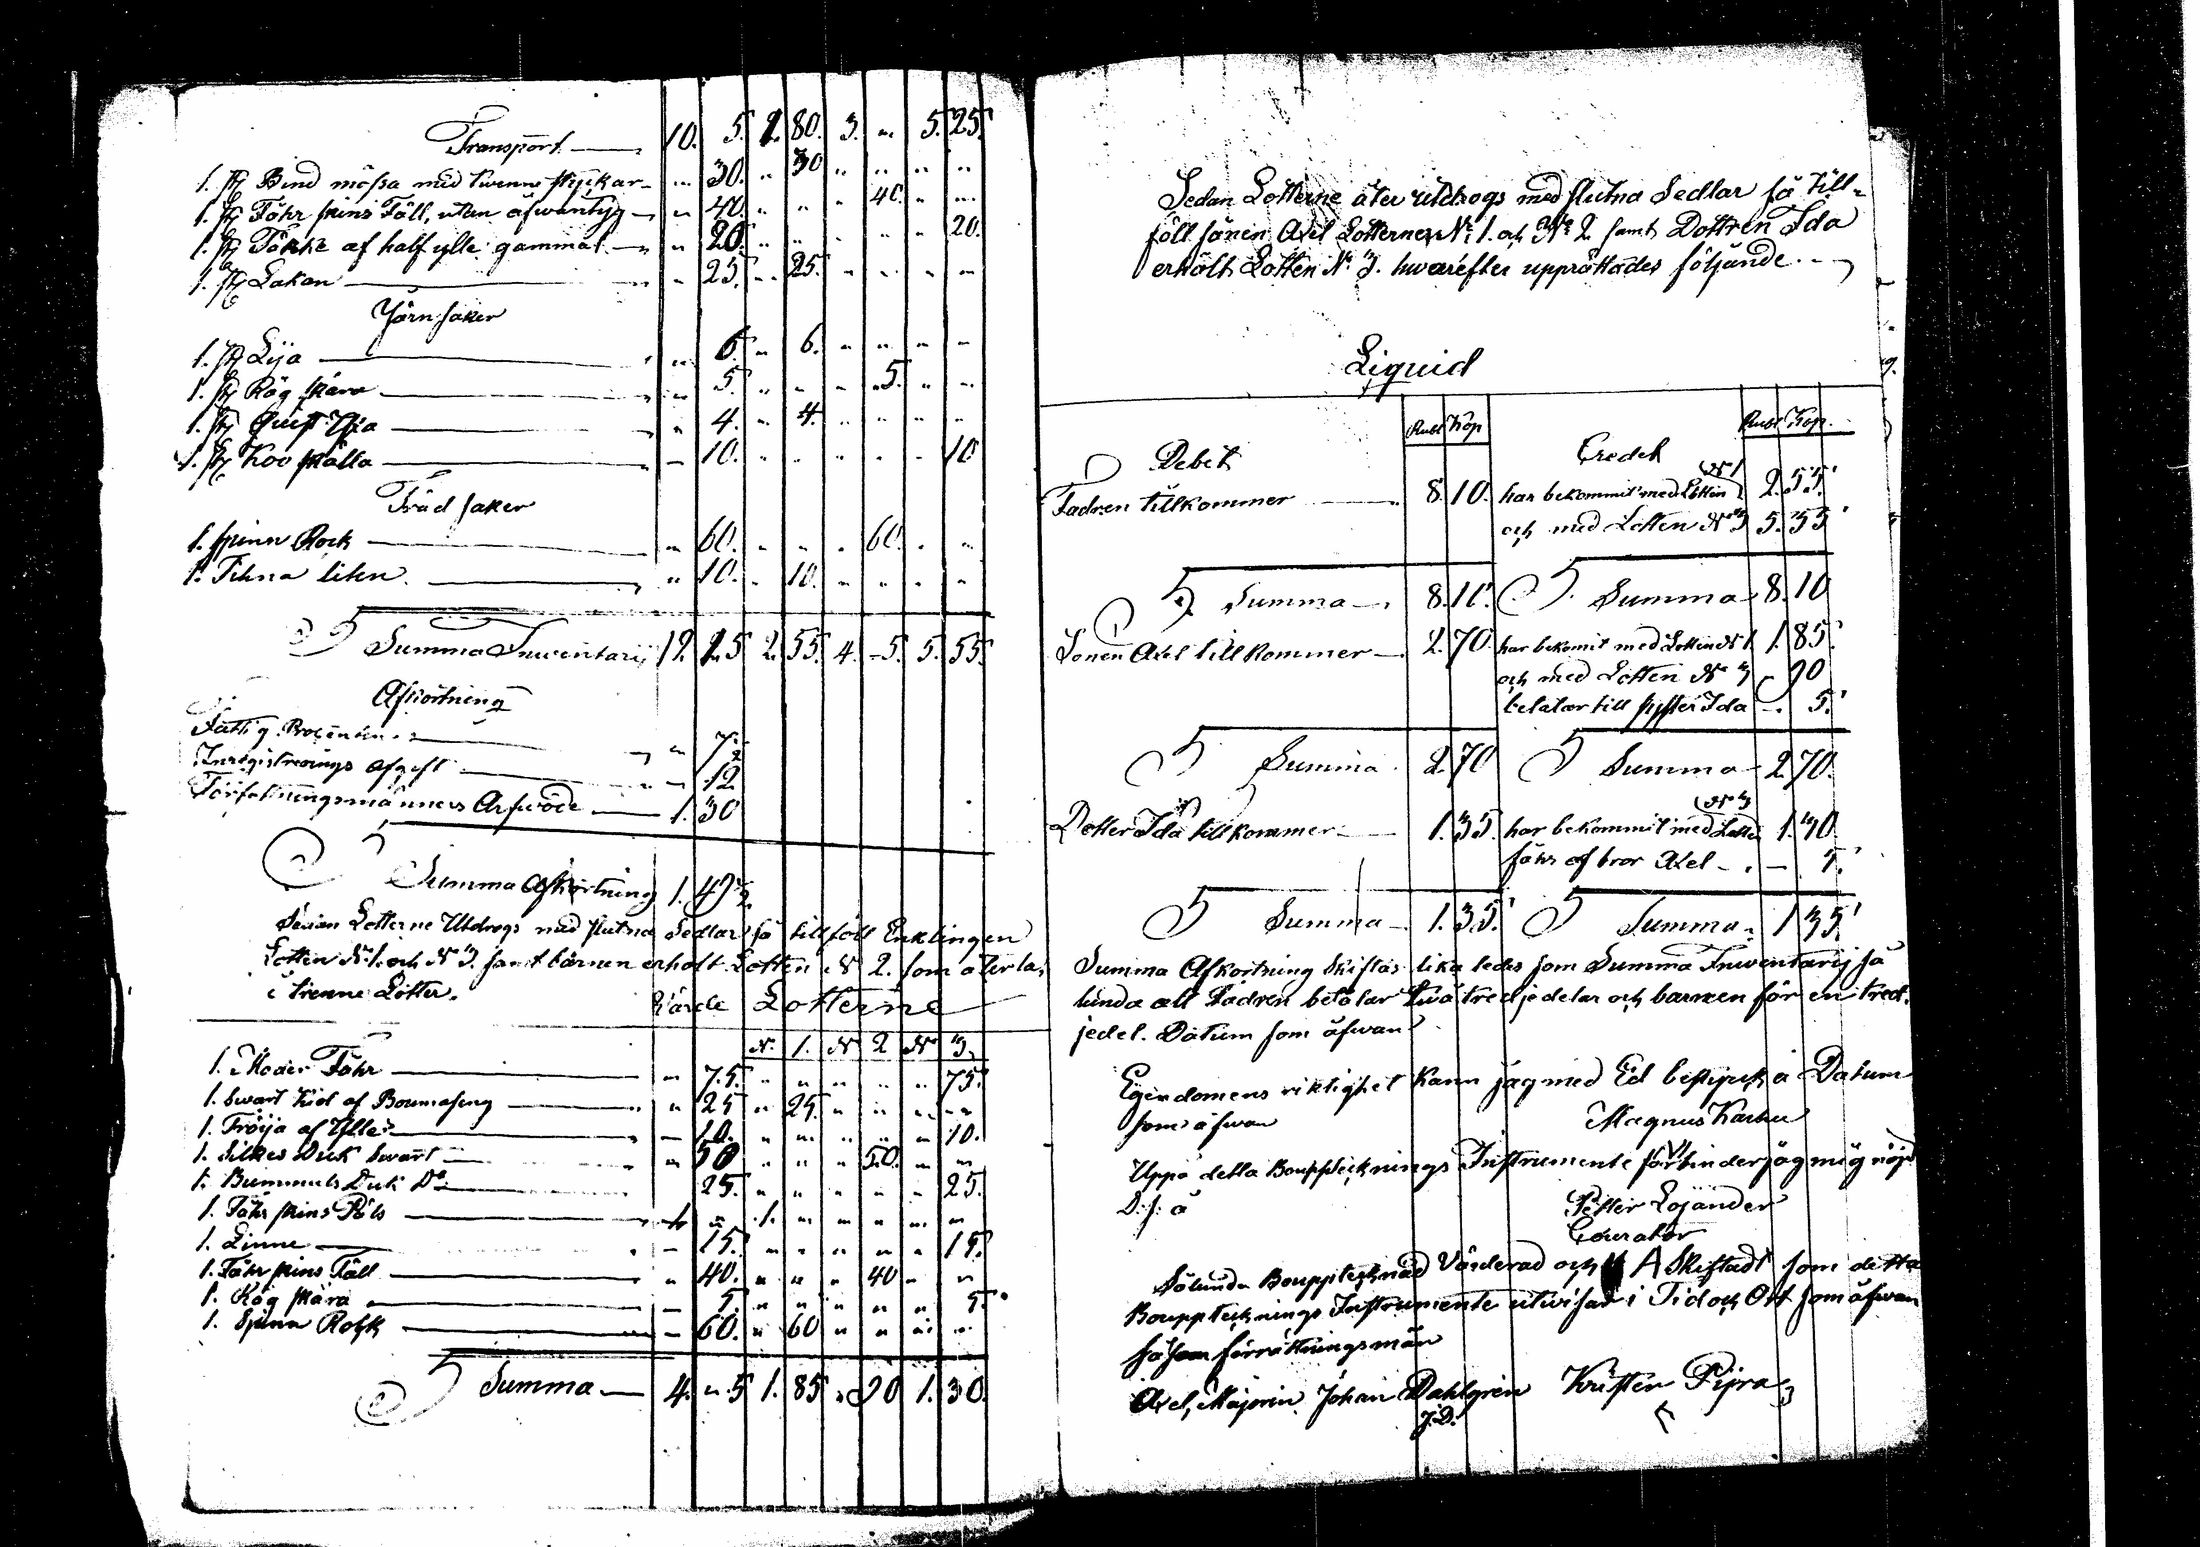 Transport — 10. 5. 1. 80. 3. „ 5. 25.
1. st Bind mössa med twenne styckar — „ 30. „ 30 „ „ „ „
1. st Fåhr skins Fäll, utan öfwantyg — „ 40. „ „ „ 40. „ „
1. st Täkke af half ylle gammal — „ 20. „ „ „ „ „ 20.
1. st Lakan — „ 25. „ 25. „ „ „ „
Järn saker
1. st Lija — „ 6. „ 6. „ „ „ „
1. st Råg skära — „ 5. „ „ „ 5. „ „
1. st Quist Yxa — „ 4. „ 4. „ „ „ „
1. st Koo skälla — „ 10. „ „ „ „ „ 10
Träd saker
1. spinn Rock — „ 60. „ „ „ 60. „ „
1. Tihna liten — „ 10. „ 10. „ „ „ „
Summa Inwentarij 12. 25 2. 55. 4. 5. 5. 55.
Afkortning
Fattig Procenten — „ 7 ½
Inregistrerings Afgift — „ 12
Författningsmänners Arfwode — 1. 30
Summa Afkortning 1. 49 ½
Sedan Lotterne Utdrogs med slutna Sedlar så tillföll Enklingen
Lotten N 1. och N 3. samt barnen erhölt Lotten N 2. som åter las
i trenne Lotter.
Värde Lotterne
N. 1. N 2 N 3.
1. Moder Fåhr — „ 75. „ „ „ „ „ 75.
1. Swart Kiol af Boumaseng — „ 25 „ 25. „ „ „ „
1. Tröija af Ylle — 10. „ „ „ „ „ 10.
1. Silkes Duk Swart — „ 50 „ „ „ 50. „ „
1. Bummuls Duk Do — 25. „ „ „ „ „ 25.
1. Fåhr skins Päls — 1. „ 1. „ „ „ „ „
1. Linne — 15. „ „ „ „ „ 15.
1. Fåhr skins Fäll — „ 40. „ „ „ 40 „ „
1. Råg skära — 5. „ „ „ „ „ 5.
1. Spinn Rock — 60. „ 60 „ „ „ „
Summa — 4. „ 5 1. 85 „ 90 1. 30.
Sedan Lotterne åter utdrogs med slutna Sedlar så till-
föll sonen Axel Lotterne N: 1. och N: 2. samt Dottren Ida
erhölt Lotten N. 3. hwarefter upprättades följande.
Liquid
Rubl Kop Rubl Kop.
Debet Credet
Fadren tillkommer — 8. 10. har bekommit med Lotten N 1 2. 55.
och med Lotten N 3 5. 55
Summa — 8. 10. Summa 8. 10
Sonen Axel tillkommer — 2. 70. har bekomit med Lotten N 1 1. 85.
och med Lotten N 90
betalar till syster Ida — 5.
Summa 2. 70 Summa 2 70.
Dotter Ida tillkommer — 1. 35. har bekommit med Lotten N 3 1. 30.
fåhr af bror Axel — 5.
Summa — 1. 35. Summa 1 35.
Summa Afkortning skiftas lika ledes som Summa Inwentarij så
lunda att Fadren betalar twå tredjedelar och barnen för en tred-
jedel. Datum som åfwan
Egendomens riktighet kann jag med Ed bestyrcka Datum
som åfwan Magnus Karhu
Uppå detta Bouppteckningsinstrumente förbinder jag mig nöjd
D. s. å Petter Lojander
Courator
Sålunda Bouppteknad Värderad och A Skiftadt som detta
Bouppteckningsinstrumente utwisar i Tid och Ort som åfwan
såsom förrättningsmän
Axel, Majorin Johan Dahlgren Krister Pyra
J. D.